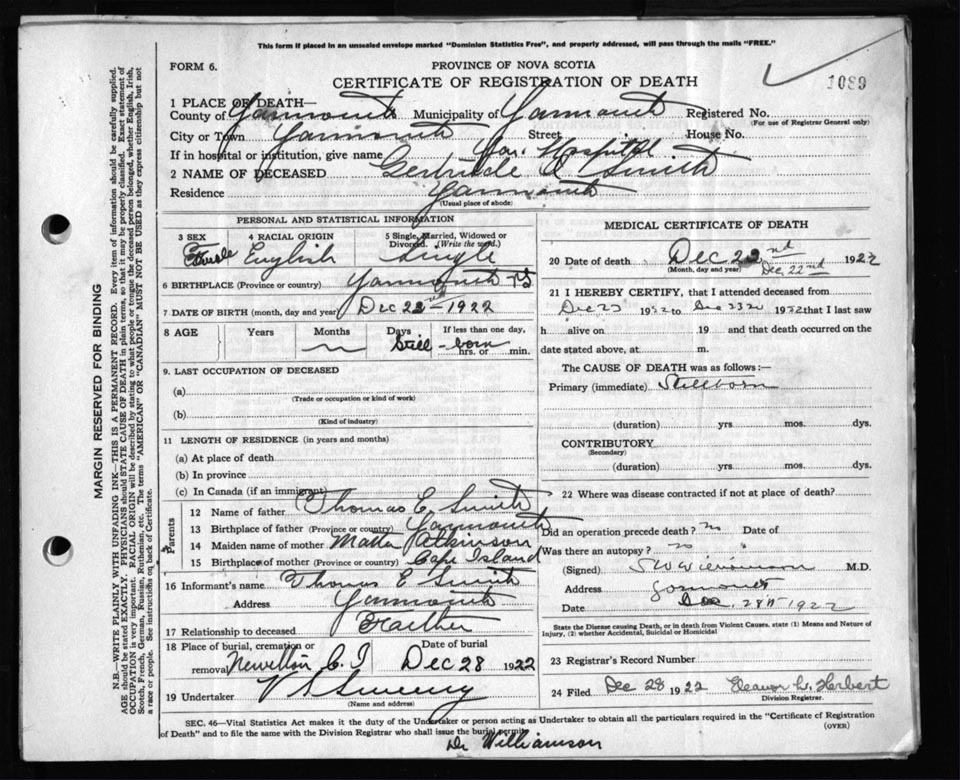 This form if placed in an unsealed envelope marked "Dominion Statistics Free", and properly addressed, will pass through the mails "FREE."
FORM 6.
PROVINCE OF NOVA SCOTIA
CERTIFICATE OF REGISTRATION OF DEATH
1089
1 PLACE OF DEATH—
County of Yarmouth Municipality of Yarmouth Registered No.
(For use of Registrar General only)
City or Town Yarmouth Street House No.
If in hospital or institution, give name Yar. Hospital
2 NAME OF DECEASED Gertrude A Smith
Residence Yarmouth
(Usual place of abode)
PERSONAL AND STATISTICAL INFORMATION
3 SEX 4 RACIAL ORIGIN 5 Single, Married, Widowed or Divorced. (Write the word.)
Female English Single
6 BIRTHPLACE (Province or country) Yarmouth NS
7 DATE OF BIRTH (month, day and year) Dec 22nd—1922
8 AGE Years Months Days If less than one day,
Still - born hrs. or min.
9. LAST OCCUPATION OF DECEASED
(a)
(Trade or occupation or kind of work)
(b)
(Kind of industry)
11 LENGTH OF RESIDENCE (in years and months)
(a) At place of death
(b) In province
(c) In Canada (if an immigrant)
Parents
12 Name of father Thomas E. Smith
13 Birthplace of father (Province or country) Yarmouth
14 Maiden name of mother Atkinson
15 Birthplace of mother (Province or country) Cape Island
16 Informant's name Thomas E Smith
Address Yarmouth
17 Relationship to deceased Father
18 Place of burial, cremation or removal Newellton C. I Date of burial Dec 28 1922
19 Undertaker V S Sweeny
(Name and address)
MEDICAL CERTIFICATE OF DEATH
20 Date of death Dec 22nd 1922
(Month, day and year) Dec 22nd
21 I HEREBY CERTIFY, that I attended deceased from
Dec 1922 to 1922 that I last saw
h alive on 19 and that death occurred on the
date stated above, at m.
The CAUSE OF DEATH was as follows:—
Primary (immediate) Stillborn
(duration) yrs. mos. dys.
CONTRIBUTORY
(Secondary)
(duration) yrs. mos. dys.
22 Where was disease contracted if not at place of death?
Did an operation precede death? no Date of
Was there an autopsy? no "
(Signed) S W Williamson M.D.
Address Yarmouth
Date Dec. 28th 1922
State the Disease causing Death, or in death from Violent Causes, state (1) Means and Nature of Injury, (2) whether Accidental, Suicidal or Homicidal
23 Registrar's Record Number
24 Filed Dec 28 1922 Eleanor L. Herbert
Division Registrar.
SEC. 46—Vital Statistics Act makes it the duty of the Undertaker or person acting as Undertaker to obtain all the particulars required in the "Certificate of Registration
of Death" and to file the same with the Division Registrar who shall issue the burial permit.
(OVER)
Dr Williamson
MARGIN RESERVED FOR BINDING
N.B.—WRITE PLAINLY WITH UNFADING INK—THIS IS A PERMANENT RECORD. Every item of information should be carefully supplied.
AGE should be stated EXACTLY. PHYSICIANS should STATE CAUSE OF DEATH in plain terms, so that it may be properly classified. Exact statement of
OCCUPATION is very important. RACIAL ORIGIN will be described by stating to what people or tongue the deceased person belonged, whether English, Irish,
Scotch, French, German, Russian, Ruthenian, etc. The terms "AMERICAN" or "CANADIAN" MUST NOT BE USED as they express citizenship but not
a race or people. See instructions on back of Certificate.